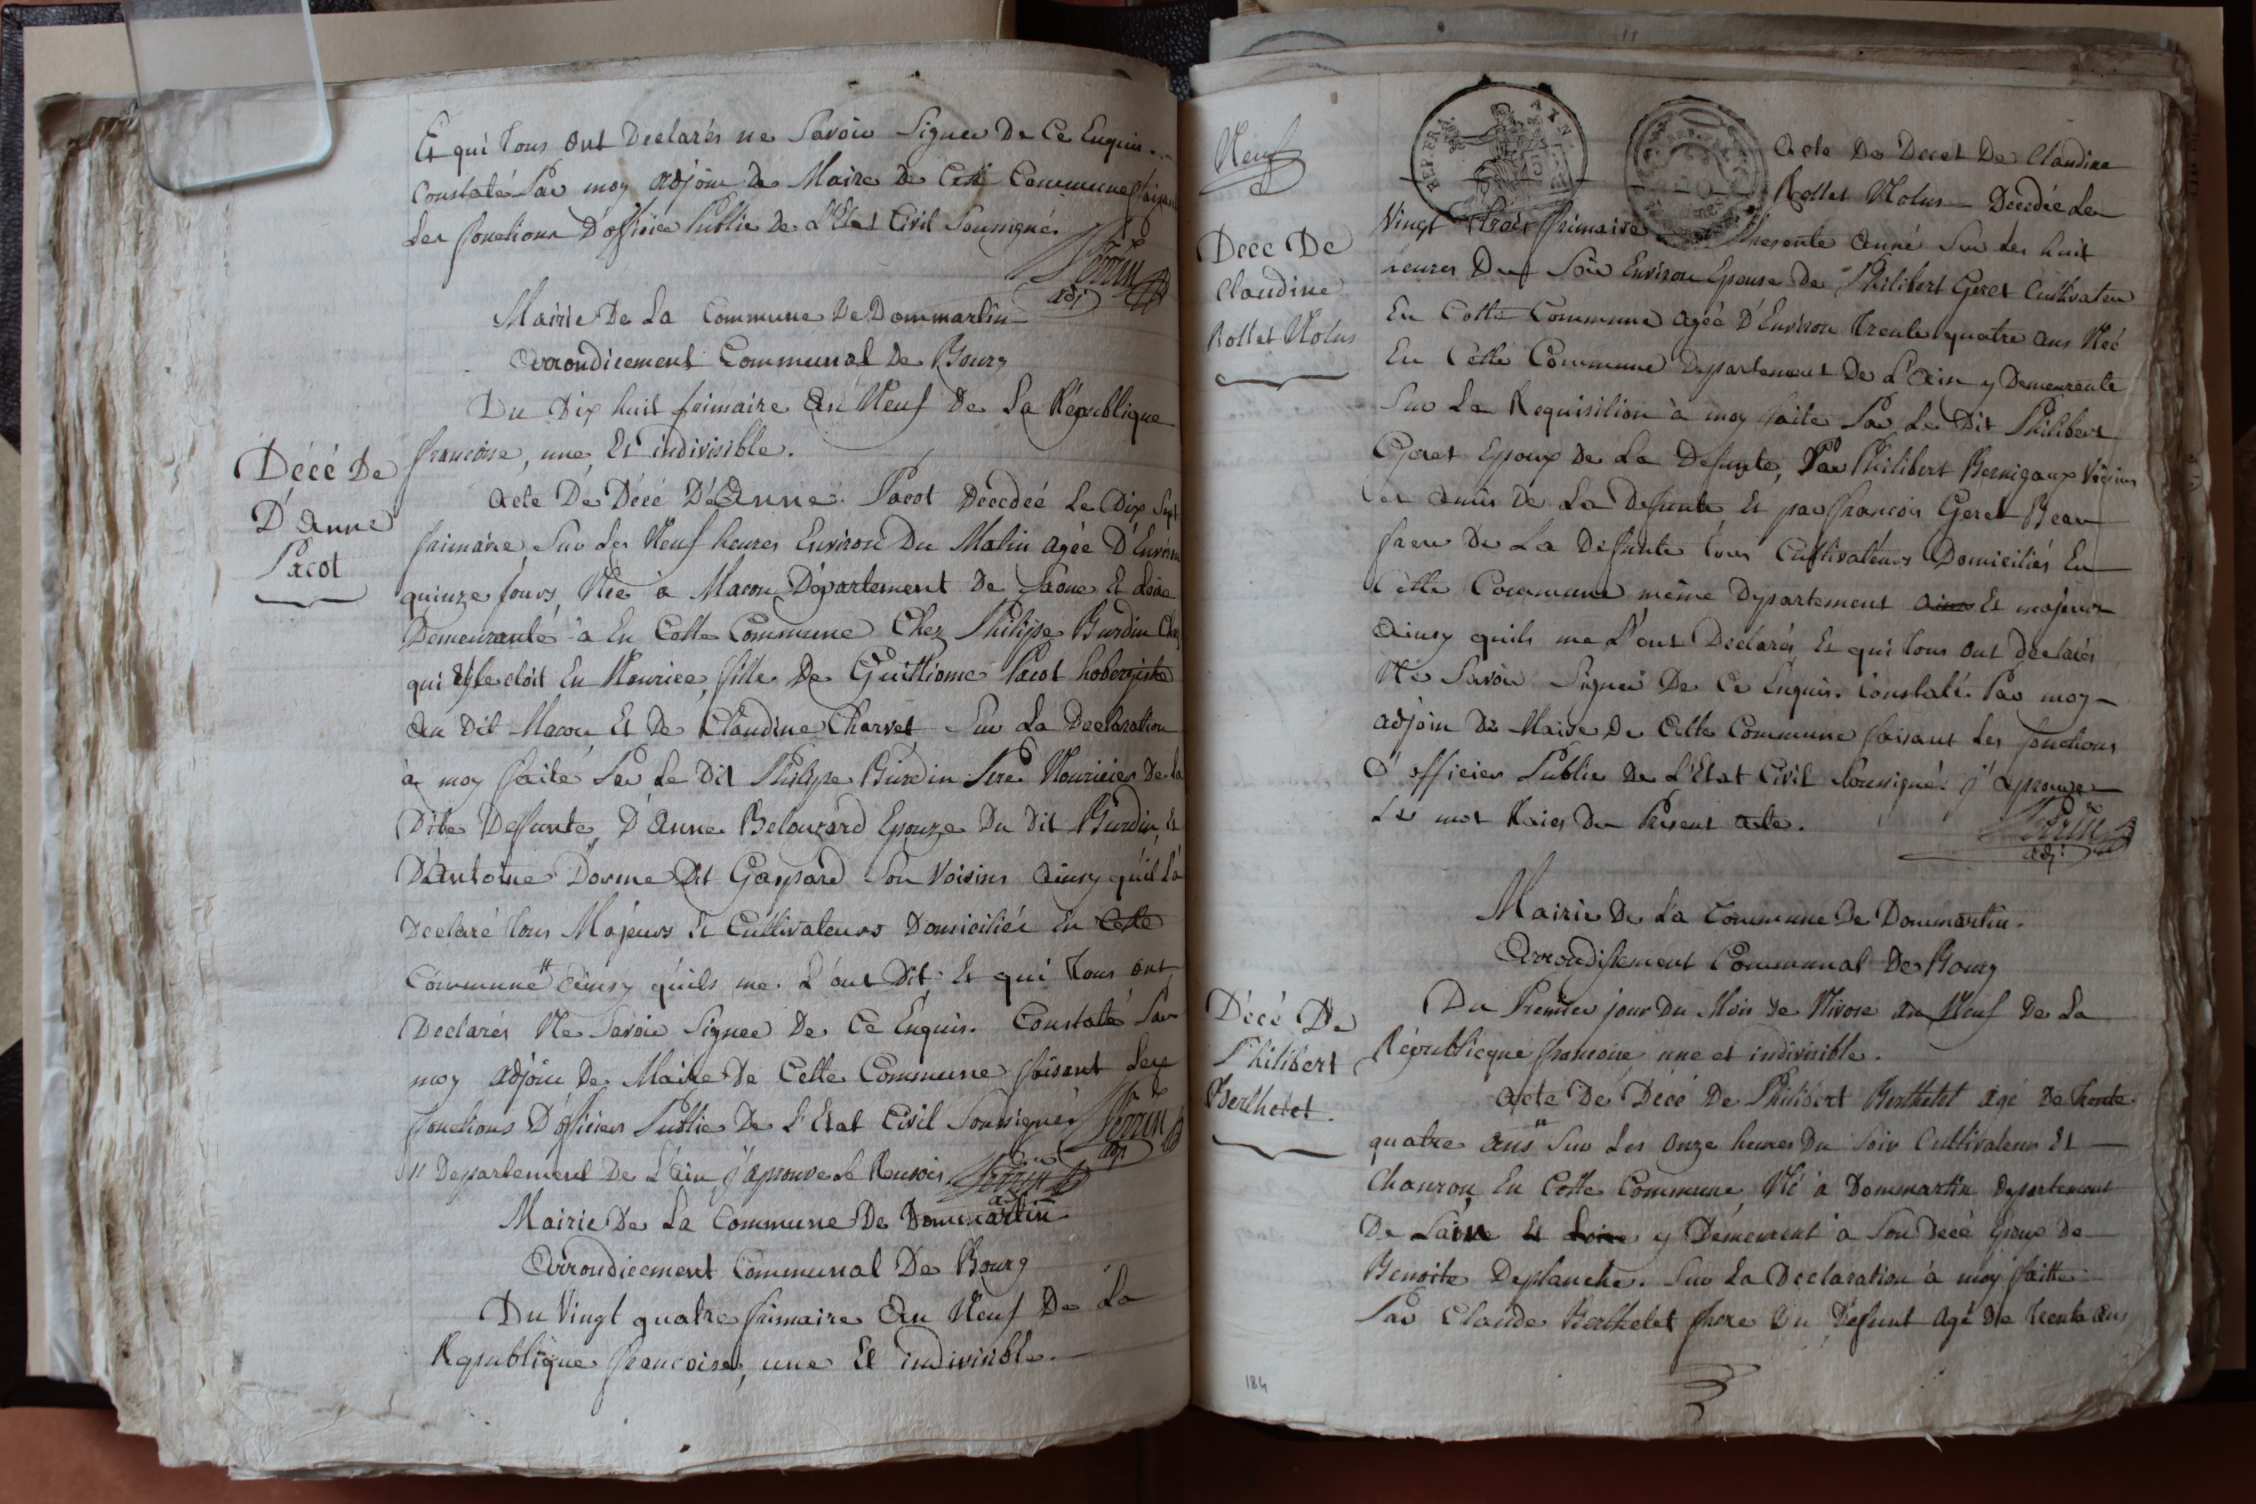 Et qui tous ont Declarés ne Savoir Signer De Ce Enquis.
Constaté Par moy adjoin de Maire de Cette Commune faisant
Les fonctions D'officier Public de L'Etat Civil Sousigné.
Perrin
adj:
Mairie De La Commune De Dommartin
arrondicement Communal de Bourg
Du Dix huit frimaire an Neuf De La République
francoise, une, Et indivisible.
Décé De
D'anne
Pacot
acte De Décé D'éanne Pacot Décedeé Le Dix Sept
frimaire Sur Les Neuf heures Environ Du Matin agée D'Environ
quinze Jours, Née à Macon Département De Saône Et Loire
Demeurante à En Cette Commune Chez Philipe Burdin Chez
qui Elle etoit En Nourice, fille De Guilliome Pacot hobergiste
au dit Macon Et De Claudine Charvet Sur La Declaration
à moy faite Par Le Dit Philipe Burdin Pere Nouricier De la
Dite Deffunte, D'Anne Belouzard Epouze Du Dit Burdin, Et
D'antoine Dorme Dit Gaspard Son Voisins ainsy quil L'a
Declaré tous Majeurs Et Cultivateurs Domiciliés En Cette
Commune " ainsy quils me L'ont Dit, Et qui tous ont
Declarés Ne Savoir Signer De Ce Enquis. Constaté Par
moy adjoin De Maire De Cette Commune faisant Les
fonctions D'officier Public De L'Etat Civil Sousigné Perrin
adj
" Departement De L'ain j'aprouve le Renvois Perrin
adj
Mairie De La Commune De Dommartin
arrondicement Communal De Bourg
Du Vingt quatre frimaire an Neuf De La
Republique francoise, une Et indivisible.
Neuf
REP. FRA.
AIN
acte De Decet De Claudine
Rollet Nolus Décédée Le
Vingt trois frimaire Presente anné Sur Les huit
heures Du Soir Environ Epouse De Philibert Geret Cultivateur
Dece De
Claudine
Rollet Nolus
En Cette Commune agéé D'Environ trente quatre ans Née
En Cette Commune Departement De L'ain y Demeurante
Sur La Requisition à moy faite Par Le Dit Philibert
Geret Epoux De La Defunte, Par Philibert Bernigaux Voisins
et amis de La Defunte Et par francois Geret Beau
frere De La Defunte tous Cultivateurs Domiciliés En
Cette Commune même Departement ains Et majeur
ainsy quils me L'ont Declarés Et qui tous ont declarés
Ne Savoir Signer De Ce Enquis. Constaté Par moy
adjoin De Maire De Cette Commune faisant Les fonctions
D'officier Public De L'Etat Civil Sousigné. j'aprouve
Les mot Raiés Du Present acte.
Perrin
adj:
Mairie De La Commune De Dommartin.
arrondissement Communal De Bourg
Du Premier jour Du Mois De Nivose an Neuf De La
Républicque francoise une et indivisible.
Décé De
Philibert
Berthelet.
acte De Décé De Philibert Berthelet agé De trente
quatre ans " Sur Les Onze heures Du Soir Cultivateur Et
Chauron En Cette Commune Né à Dommartin departement
De Lain Et Loire y Demeurent à Son Decé Epoux De
Benoite Deplanche. Sur La Declaration à moy faitte
Par Claude Berthelet frere Du Defunt agé De trente ans
184